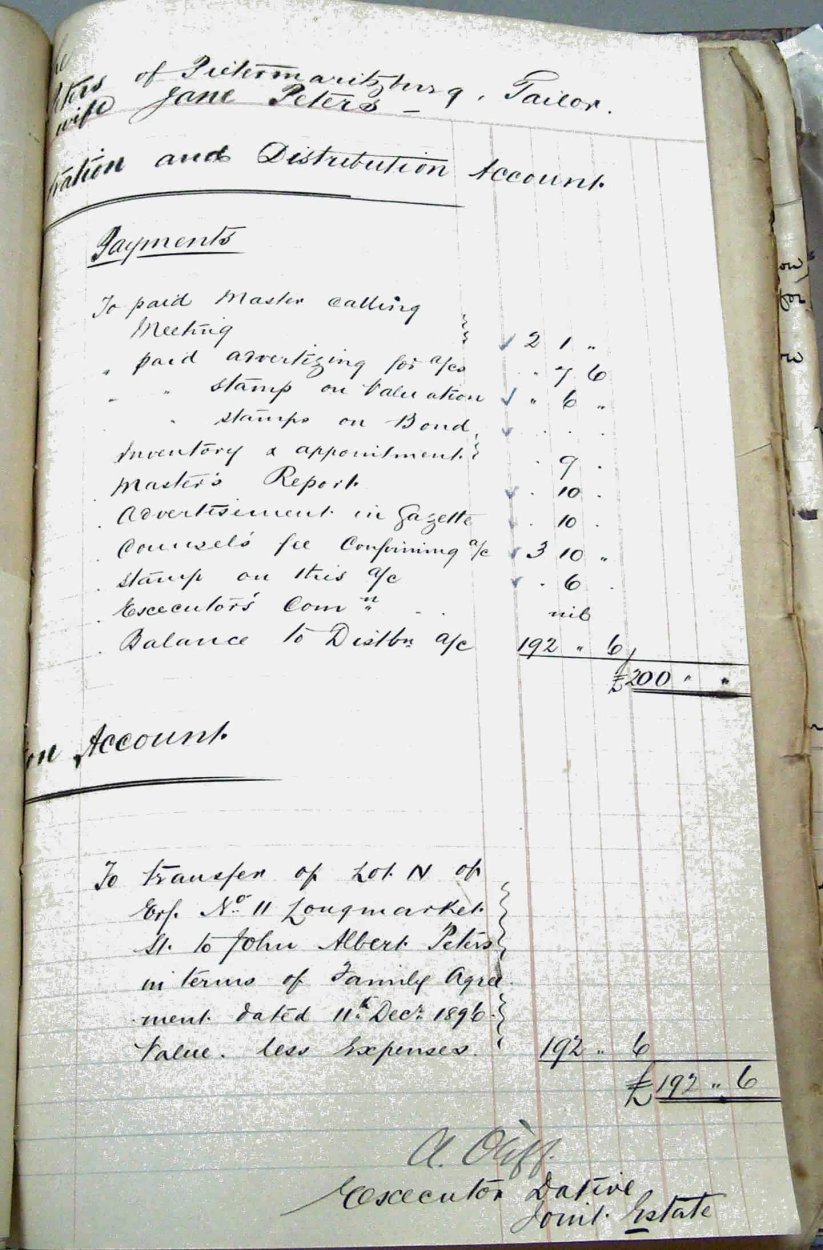 of Pietermaritzburg, Tailor.
wife Jane Peters –
tration and Distribution Account
Payments
To paid Master calling
Meeting ✓ 2 1 "
" paid advertizing for a/cs " 7 6
" " stamp on Valuation ✓ " 6 "
" stamps on Bond
Inventory & appointment . 9 .
. Master's Report ✓ . 10 .
. Advertisement in Gazette . 10 .
. Counsel's fee Confirming a/c ✓ 3 10 "
. stamp on this a/c ✓ . 6 .
. Executor's Comn . . nil
. Balance to Distbn a/c 192 " 6
£200 " "
on Account
To transfer of Lot N of
Erf. No. 11 Longmarket
St. to John Albert Peters
in terms of Family Agree
ment dated 11th Decr. 1896.
Value. less Expenses. 192 " 6
£192 " 6
A. Oliff.
Executor Dative
Joint Estate